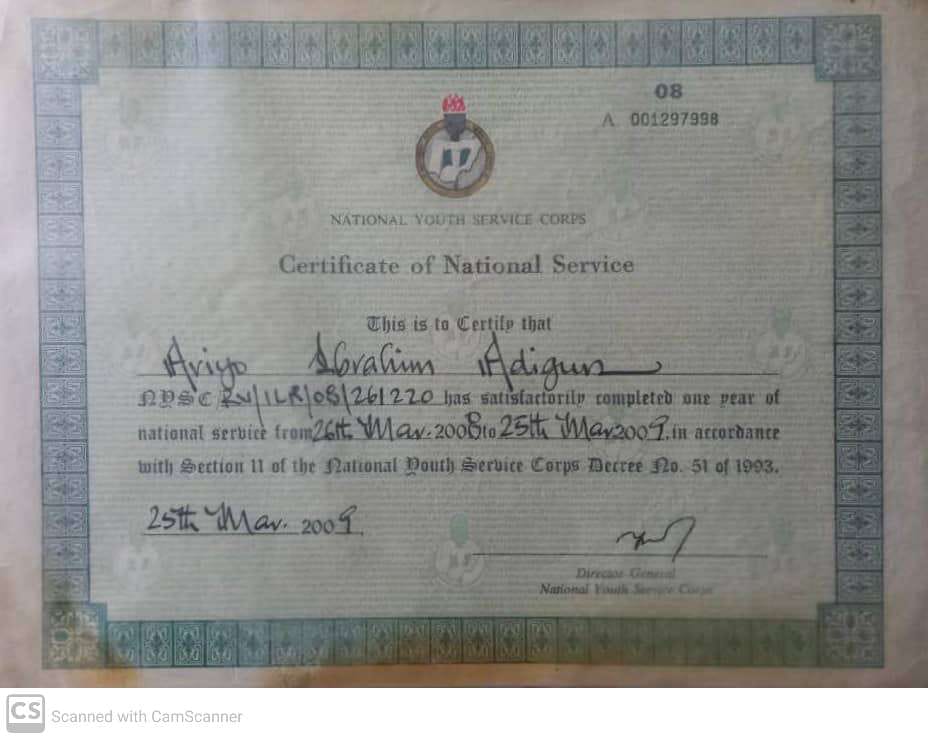 08
A 001297998
NATIONAL YOUTH SERVICE CORPS
Certificate of National Service
This is to Certify that
Ariyo Ibrahim Adigun
NYSC RV/ILR/08/261220 has satisfactorily completed one year of
national service from 26th Mar. 2008 to 25th Mar 2009. in accordance
with Section 11 of the National Youth Service Corps Decree No. 51 of 1993.
25th Mar. 2009.
Director-General
National Youth Service Corps
CS Scanned with CamScanner